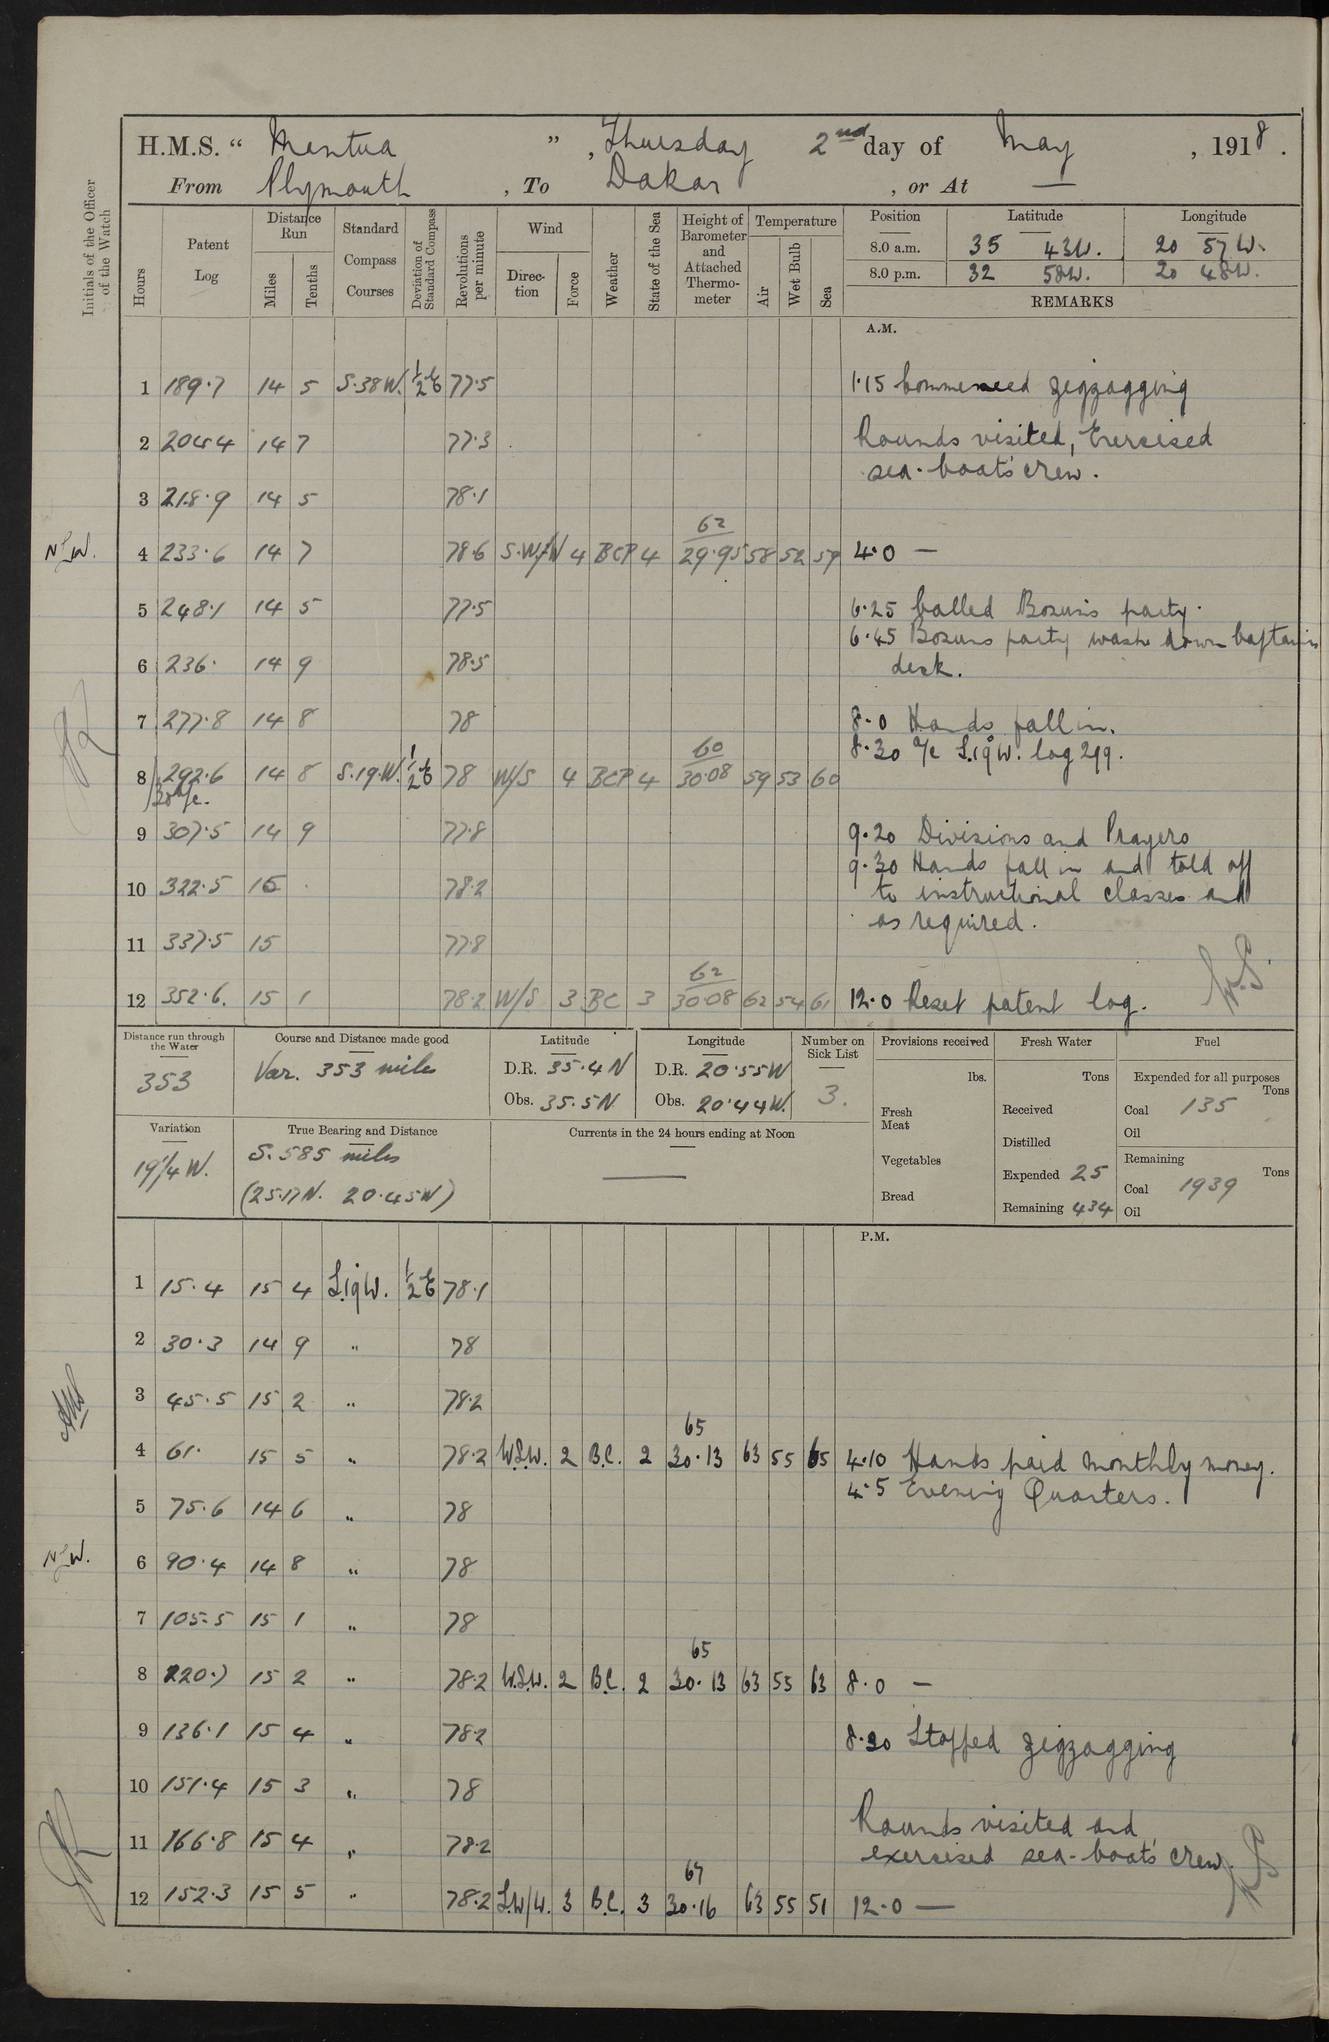 H.M.S. “ Mantua ” , Thursday 2nd day of May , 1918 .
From Plymouth , To Dakar , or At —
Initials of the Officer of the Watch
Hours
Patent Log
Distance Run
Miles
Tenths
Standard Compass Courses
Deviation of Standard Compass
Revolutions per minute
Wind
Direction
Force
Weather
State of the Sea
Height of Barometer and Attached Thermometer
Temperature
Air
Wet Bulb
Sea
Position Latitude Longitude
8.0 a.m. 35 43W. 20 57W.
8.0 p.m. 32 58W. 20 48W.
REMARKS
A.M.
1 189.7 14 5 S.38W. ½E 77.5 1.15 Commenced zigzagging
2 204.4 14 7 77.3 Rounds visited, Exercised
sea-boat's crew.
3 218.9 14 5 78.1
62
4 233.6 14 7 78.6 S.W/W 4 BCP 4 29.95 58 52 59 4.0 —
5 248.1 14 5 77.5 6.25 Called Bosun's party.
6.45 Bosuns party wash down Captain's
6 236. 14 9 78.5 deck.
7 277.8 14 8 78 8.0 Hands fall in.
60
8.30 a/c S.19W. log 299.
8 292.6 14 8 S.19.W. ½E 78 W/S 4 BCP 4 30.08 59 53 60
30 a/c.
9 307.5 14 9 77.8 9.20 Divisions and Prayers
9.30 Hands fall in and told off
10 322.5 15 78.2 to instructional classes and
as required.
11 337.5 15 77.8
62
12 352.6. 15 1 78.2 W/S 3 BC 3 30.08 62 54 61 12.0 Reset patent log.
Distance run through the Water
353
Course and Distance made good
Var. 353 miles
Latitude
D.R. 35.4N
Obs. 35.5N
Longitude
D.R. 20.55W
Obs. 20.44W.
Number on Sick List
3.
Provisions received
lbs.
Fresh Meat
Vegetables
Bread
Fresh Water
Tons
Received
Distilled
Expended 25
Remaining 434
Fuel
Expended for all purposes
Tons
Coal 135
Oil
Remaining
Tons
Coal 1939
Oil
Variation
19¼W.
True Bearing and Distance
S. 585 miles
(25.17N. 20.45W)
Currents in the 24 hours ending at Noon
—
P.M.
1 15.4 15 4 S.19W. ½E 78.1
2 30.3 14 9 " 78
3 45.5 15 2 " 78.2
65
4 61. 15 5 " 78.2 W.S.W. 2 B.C. 2 30.13 63 55 65 4.10 Hands paid monthly money.
4.5 Evening Quarters.
5 75.6 14 6 " 78
6 90.4 14 8 " 78
7 105.5 15 1 " 78
65
8 220.7 15 2 " 78.2 W.S.W. 2 B.C. 2 30.13 63 55 63 8.0 —
9 136.1 15 4 " 78.2 8.30 Stopped zigzagging
10 151.4 15 3 " 78
Rounds visited and
11 166.8 15 4 " 78.2 exercised sea-boat's crew.
67
12 152.3 15 5 " 78.2 S.W/W. 3 B.C. 3 30.16 63 55 51 12.0 —